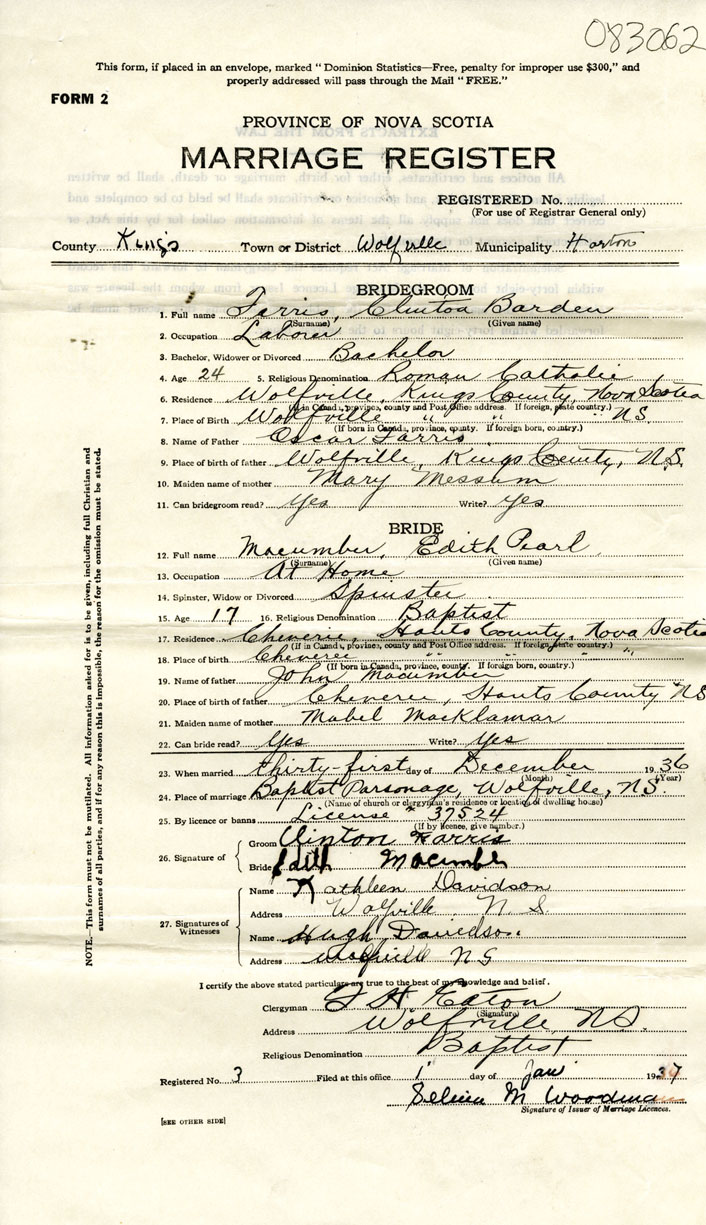 083062
This form, if placed in an envelope, marked "Dominion Statistics—Free, penalty for improper use $300," and
properly addressed will pass through the Mail "FREE."
FORM 2
PROVINCE OF NOVA SCOTIA
MARRIAGE REGISTER
REGISTERED No.
(For use of Registrar General only)
County Kings Town or District Wolfville Municipality Horton
BRIDEGROOM
1. Full name Farris, Clinton Barden
(Surname) (Given name)
2. Occupation Laborer
3. Bachelor, Widower or Divorced Bachelor
4. Age 24 5. Religious Denomination Roman Catholic
6. Residence Wolfville, Kings County, Nova Scotia
(If in Canada, province, county and Post Office address. If foreign, state country.)
7. Place of Birth Wolfville " " N.S.
(If born in Canada, province, county. If foreign born, country.)
8. Name of Father Oscar Farris
9. Place of birth of father Wolfville, Kings County, N.S.
10. Maiden name of mother Mary Messum
11. Can bridegroom read? Yes Write? Yes
BRIDE
12. Full name Macumber, Edith Pearl
(Surname) (Given name)
13. Occupation At Home
14. Spinster, Widow or Divorced Spinster
15. Age 17 16. Religious Denomination Baptist
17. Residence Cheverie, Hants County, Nova Scotia
(If in Canada, province, county and Post Office address. If foreign, state country.)
18. Place of birth Cheveree " " "
(If born in Canada, province, county. If foreign born, country.)
19. Name of father John Macumber
20. Place of birth of father Cheveree, Hants County NS
21. Maiden name of mother Mabel MacKlamar
22. Can bride read? Yes Write? Yes
23. When married thirty-first day of December 1936
(Month) (Year)
24. Place of marriage Baptist Parsonage, Wolfville, N.S.
(Name of church or clergyman's residence or location of dwelling house)
25. By licence or banns License # 37524
(If by licence, give number.)
26. Signature of
Groom Clinton Farris
Bride Edith Macumber
27. Signatures of Witnesses
Name Kathleen Davidson
Address Wolfville N.S.
Name Hugh Davidson
Address Wolfville N S
I certify the above stated particulars are true to the best of my knowledge and belief.
Clergyman F H Eaton
(Signature)
Address Wolfville, N.S.
Religious Denomination Baptist
Registered No. 3 Filed at this office 1 day of Jan 1937
M Woodman
Signature of Issuer of Marriage Licences.
[SEE OTHER SIDE]
NOTE.—This form must not be mutilated. All information asked for is to be given, including full Christian and
surnames of all parties, and if for any reason this is impossible, the reason for the omission must be stated.